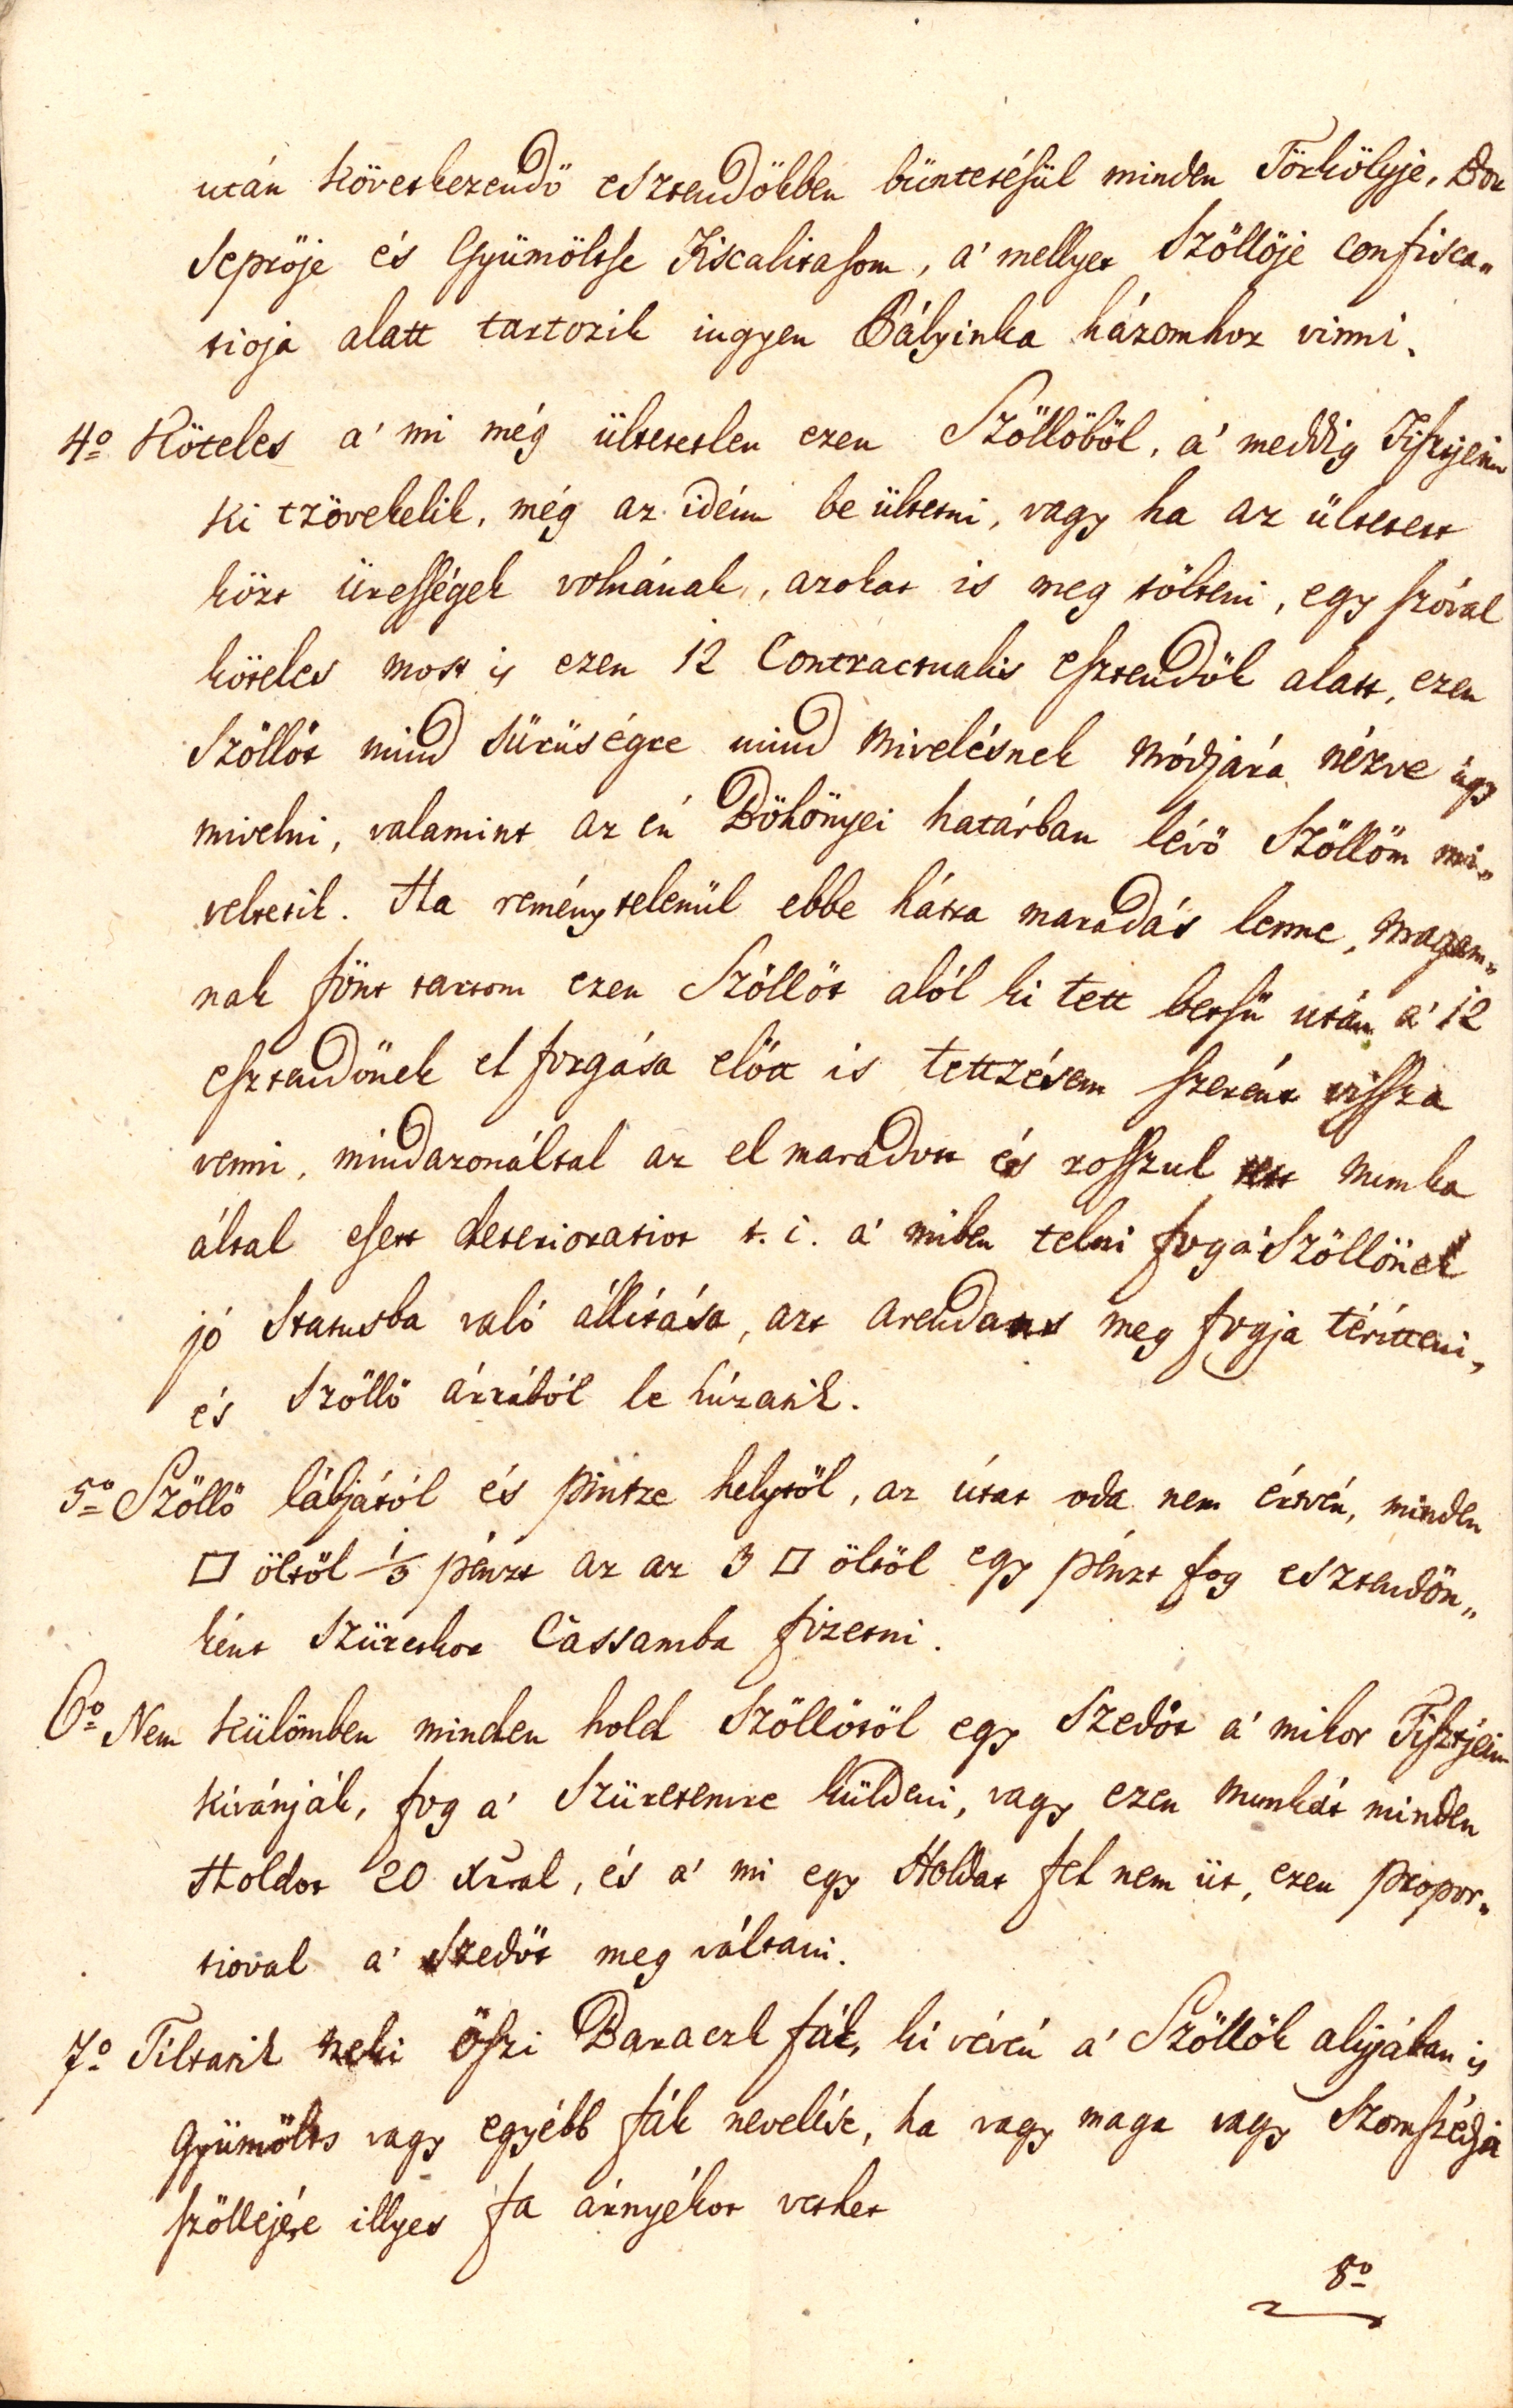 után következendő esztendőkben büntetésül minden Törkölyje, Bor
Seprője és Gyümöltse Fiscalitasom, a' mellyet Szöllője confisca„
tioja alatt tartozik ingyen Pályinka házomhoz vinni.
4o Köteles a' mi még ültetetlen ezen Szöllőböl, a' meddig Tisztjeim
ki tzövekelik, még az idén be ültetni, vagy ha az ültetett
közt üressségek volnának, azokat is meg tölteni, egy szóval
köteles most is ezen 12 Contractualis esztendők alatt, ezen
Szöllőt mind sürüségre mind mivelésnek módjára nézve úgy
mivelni, valamint az én Bökönyei határban lévő Szöllőm mi„
veltetik. Ha reménytelenül ebbe hátra maradás lenne, magam„
nak fönt tartom ezen Szöllőt alól ki tett betsü után a' 12
esztendőnek el forgása előtt is tettzésem szerént vissza
venni, mindazonáltal az el maradott és rosszul tett munka
által esett deterioratiot t. i. a' miben telni fog a' Szöllőnek
jó Statusba való állitása, azt arendans meg fogja téritteni,
és Szöllő árrából le húzatik.
5o Szöllő lábjától és pintze helytöl, az útat oda nem értvén, minden
□ öltöl 1/3 pénzt az az 3 □ öltöl egy pénzt fog esztendőn„
ként Szüretkor Cassamba fizetni.
6o Nem külömben minden hold Szöllötöl egy Szedőt a' mikor Tisztjeim
kívánják, fog a' Szüretemre küldeni, vagy ezen munkát minden
Holdot 20 Xrral, és a' mi egy Holdat fel nem üt, ezen propor„
tioval a' Szedőt meg váltani.
7o Tiltatik neki Őszi Baraczk fák, ki vévén a' Szöllők alyjában is
Gyümölts vagy egyébb fák nevelése, ha vagy maga vagy Szomszédja
szöllejére illyes fa árnyékot vethet
8o